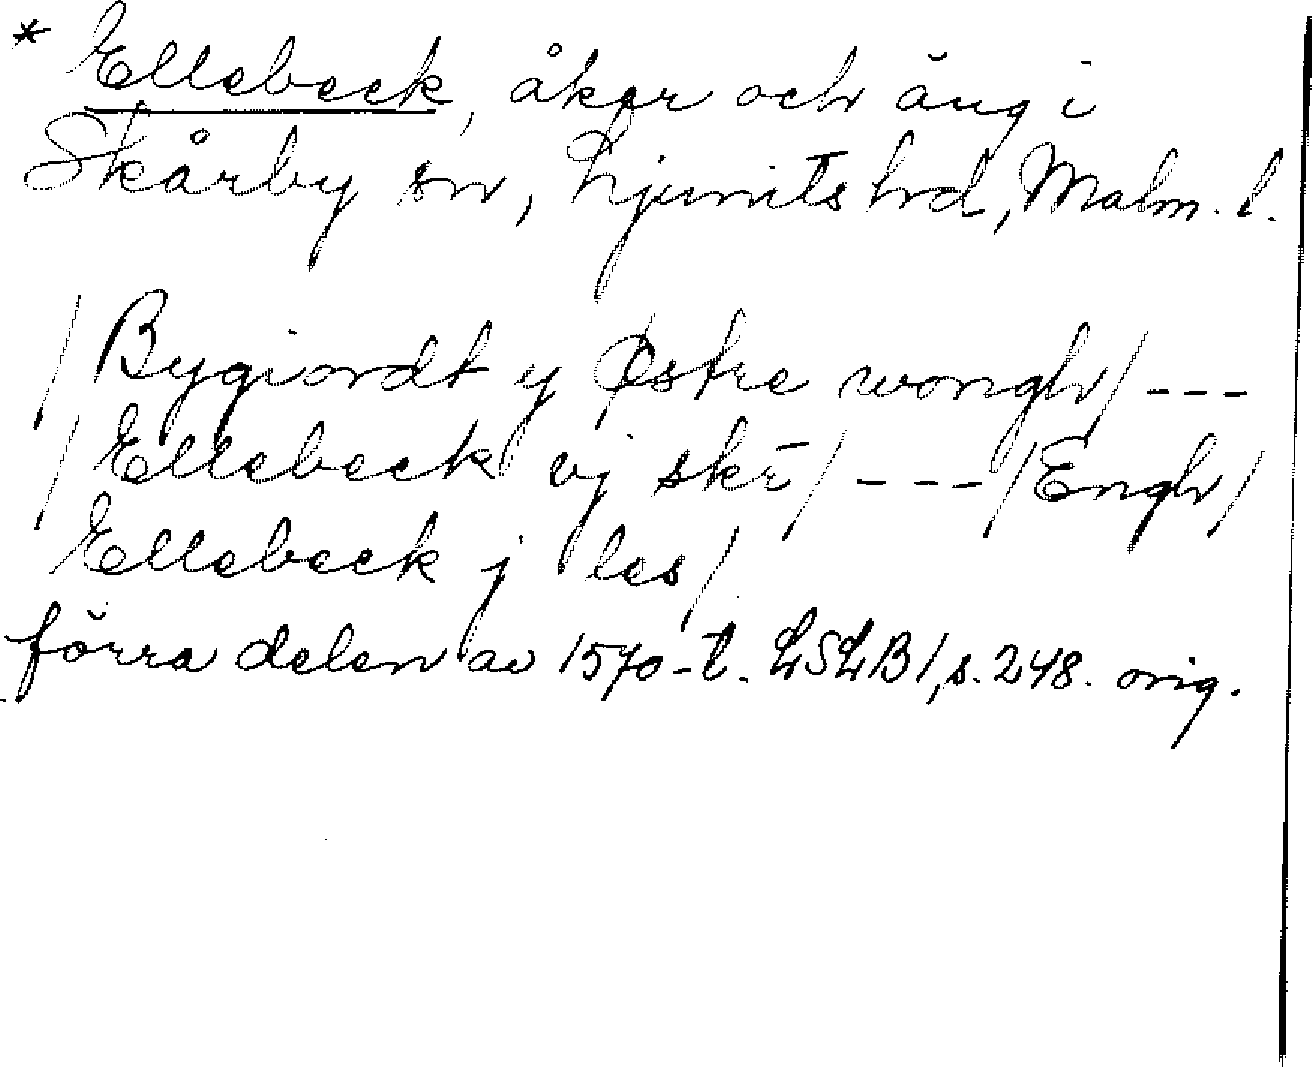 * Ellebeck, åker och äng i
Skårby sn, Ljunits hd, Malm. l.
/Bygiordt y Østre wongh/ ---
/Ellebeck vj skr̄/ ---/Engh/
Ellebeck j les/
förra delen av 1570-t. LSLB1, s. 248. orig.